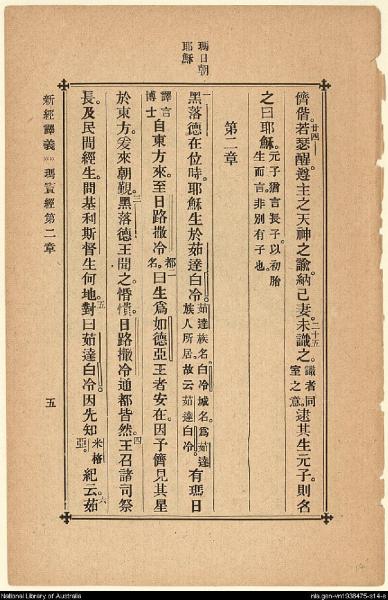 瑪日朝
耶穌
儕偕。廿四若瑟醒。遵主之天神之諭。納己妻。二十五未識之。識者同室之意。逮其生元子。則名
之曰耶穌。元子猶言長子。以初胎生而言。非別有子也。
第二章
一黑落德在位時。耶穌生於茹達白冷。茹達族名。白冷城名。為茹達族人所居。故云茹達白冷。有瑪日
譯言博士自東方來。至日路撒冷。都名。二曰生為如德亞王者安在。因予儕見其星
於東方。爰來朝覲。三黑落德王聞之。惛憒。日路撒冷通都皆然。四王召諸司祭
長。及民間經生。問基利斯督生何地。五對曰茹達白冷。因先知米格亞。紀云。六茹
新經譯義 瑪竇經第二章 五
National Library of Australia
nla.gen-vn1938475-s14-e